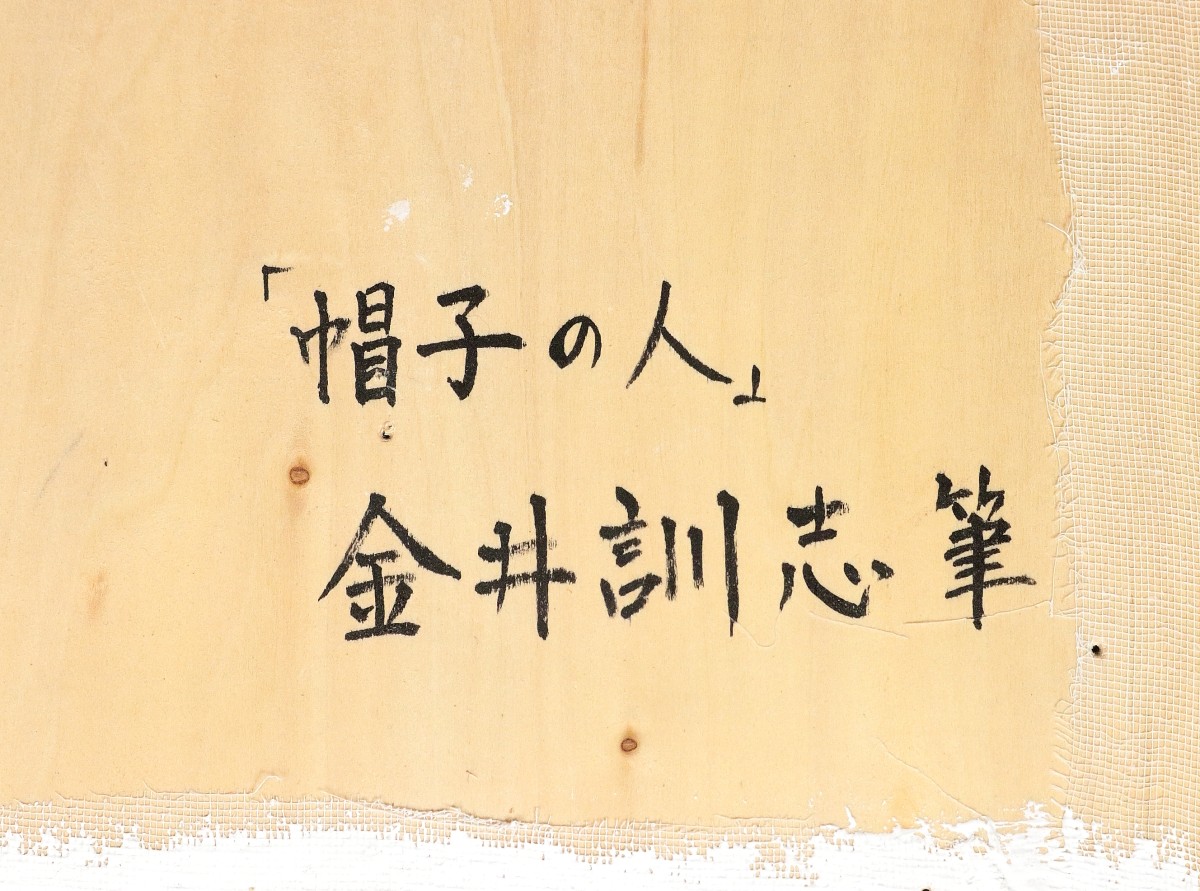 「帽子の人」
金井訓志筆